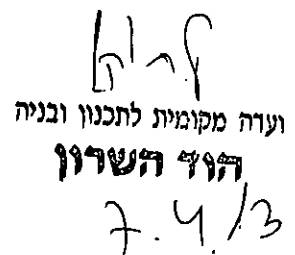 ועדה מקומית לתכנון ובניה
הוד השרון
7.4.13